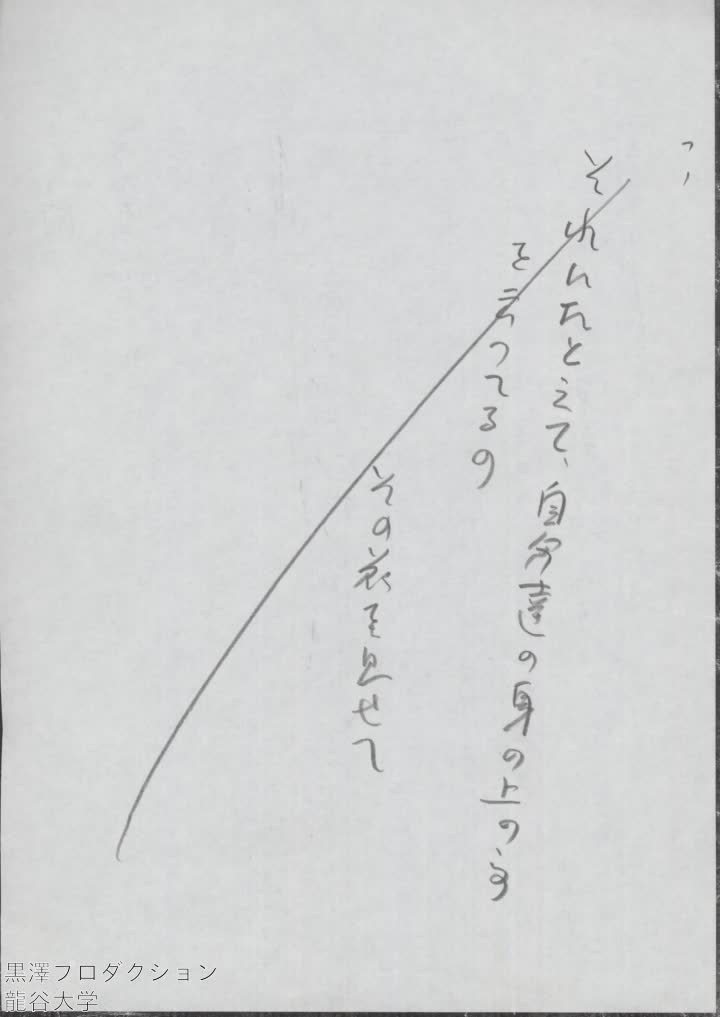 それにたとえて、自分達の身の上の事
を云つてるの
そのを見せて
黒澤フロダクション
龍谷大学